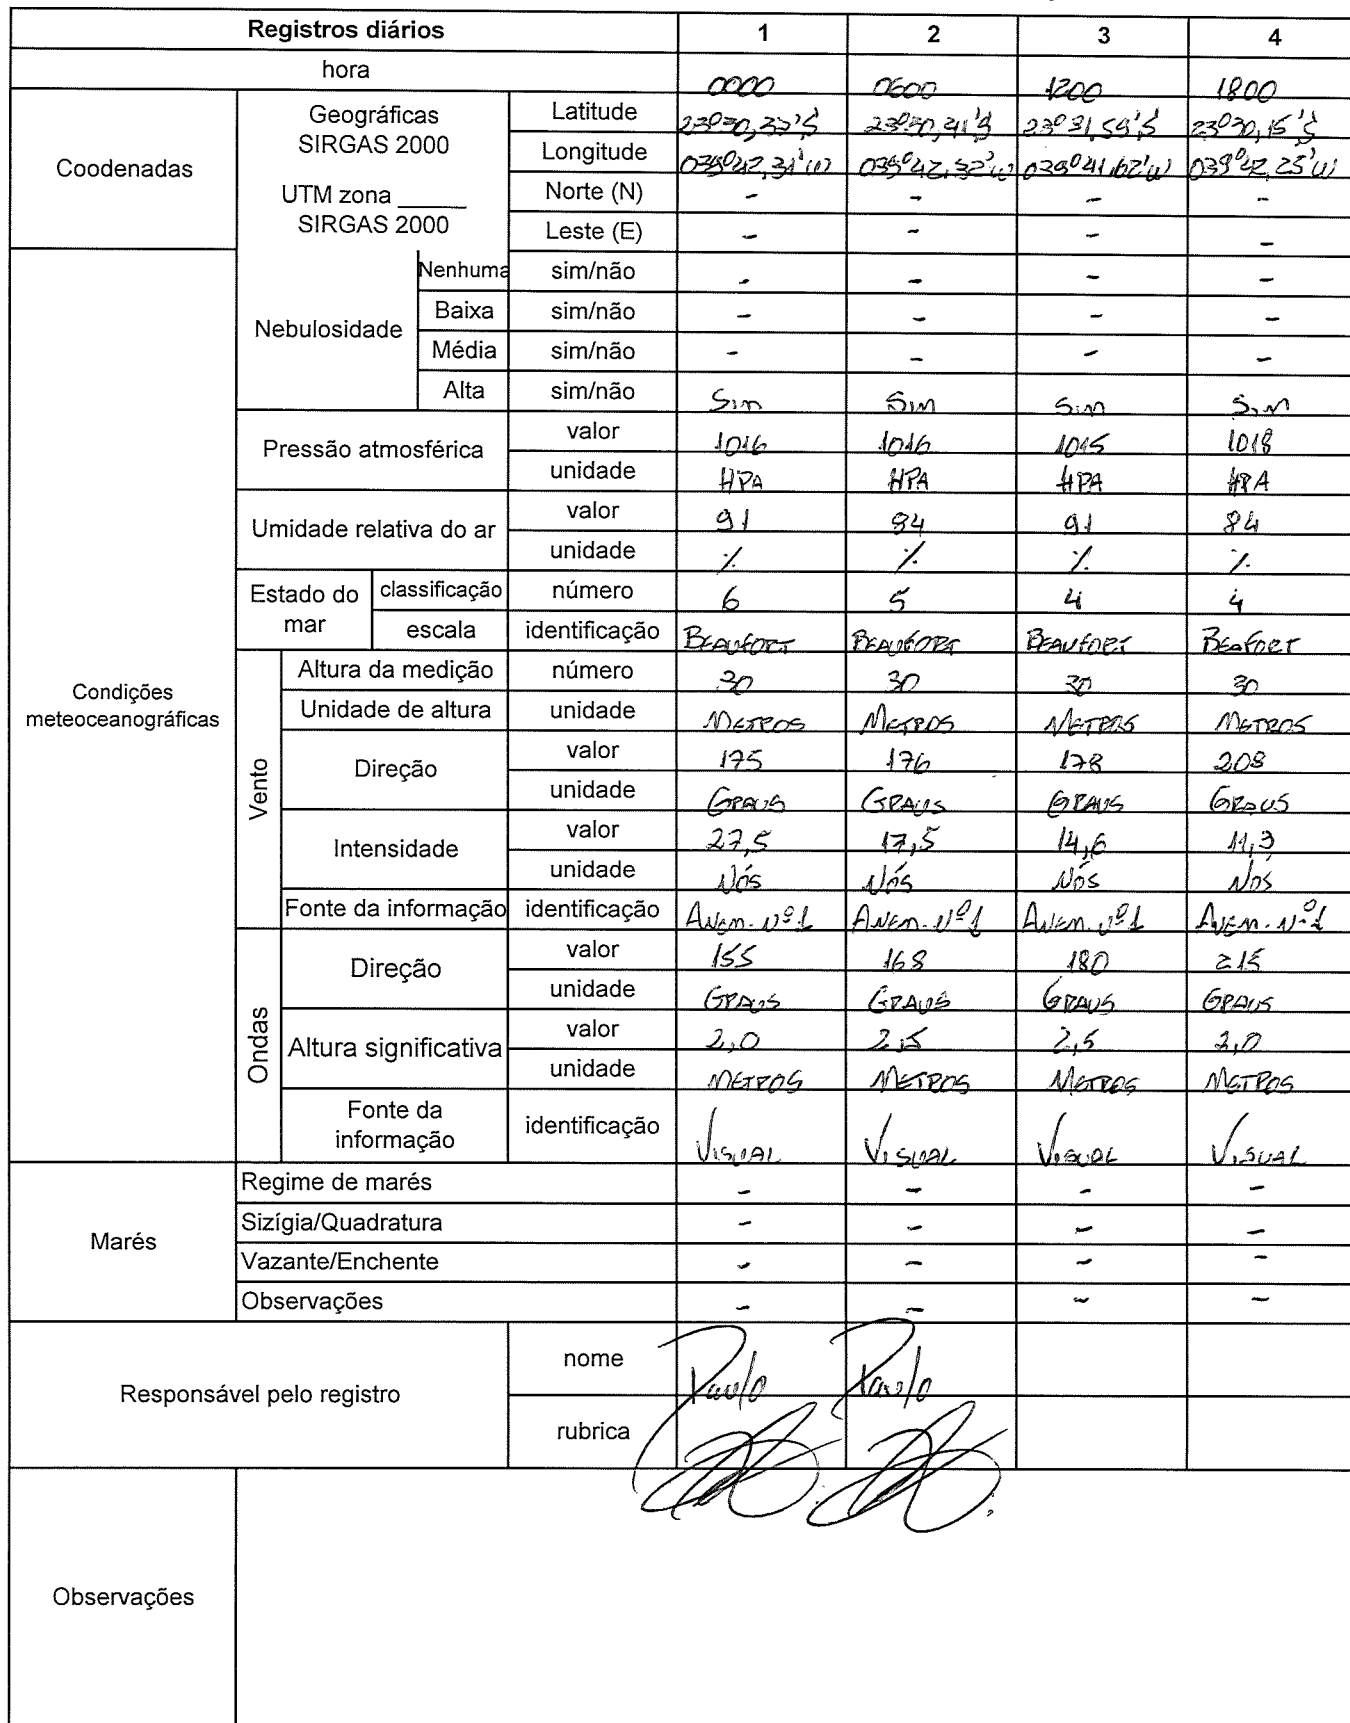 Registros diários 1 2 3 4
hora 0000 0600 1200 1800
Coodenadas
Geográficas
SIRGAS 2000
UTM zona _____
SIRGAS 2000
Latitude 23°30,33'S 23°30,41'S 23°31,59'S 23°30,15'S
Longitude 039°42,31'W 039°42,32'W 039°41,62'W 039°42,25'W
Norte (N) - - - -
Leste (E) - - - -
Condições
meteoceanográficas
Nebulosidade
Nenhuma sim/não - - - -
Baixa sim/não - - - -
Média sim/não - - - -
Alta sim/não Sim Sim Sim Sim
Pressão atmosférica
valor 1016 1016 1015 1018
unidade HPA HPA HPA HPA
Umidade relativa do ar
valor 91 94 91 84
unidade % % % %
Estado do
mar
classificação número 6 5 4 4
escala identificação BEAUFORT BEAUFORT BEAUFORT BEAFORT
Vento
Altura da medição número 30 30 30 30
Unidade de altura unidade METROS METROS METROS METROS
Direção
valor 175 176 178 208
unidade GRAUS GRAUS GRAUS GRAUS
Intensidade
valor 27,5 17,5 14,6 11,3
unidade NÓS NÓS NÓS NÓS
Fonte da informação identificação ANEM. Nº1 ANEM. Nº1 ANEM. Nº1 ANEM. Nº1
Ondas
Direção
valor 155 168 180 215
unidade GRAUS GRAUS GRAUS GRAUS
Altura significativa
valor 2,0 2,5 2,5 2,0
unidade METROS METROS METROS METROS
Fonte da
informação
identificação VISUAL VISUAL VISUAL VISUAL
Marés
Regime de marés - - - -
Sizígia/Quadratura - - - -
Vazante/Enchente - - - -
Observações - - - -
Responsável pelo registro
nome Paulo Paulo
rubrica
Observações